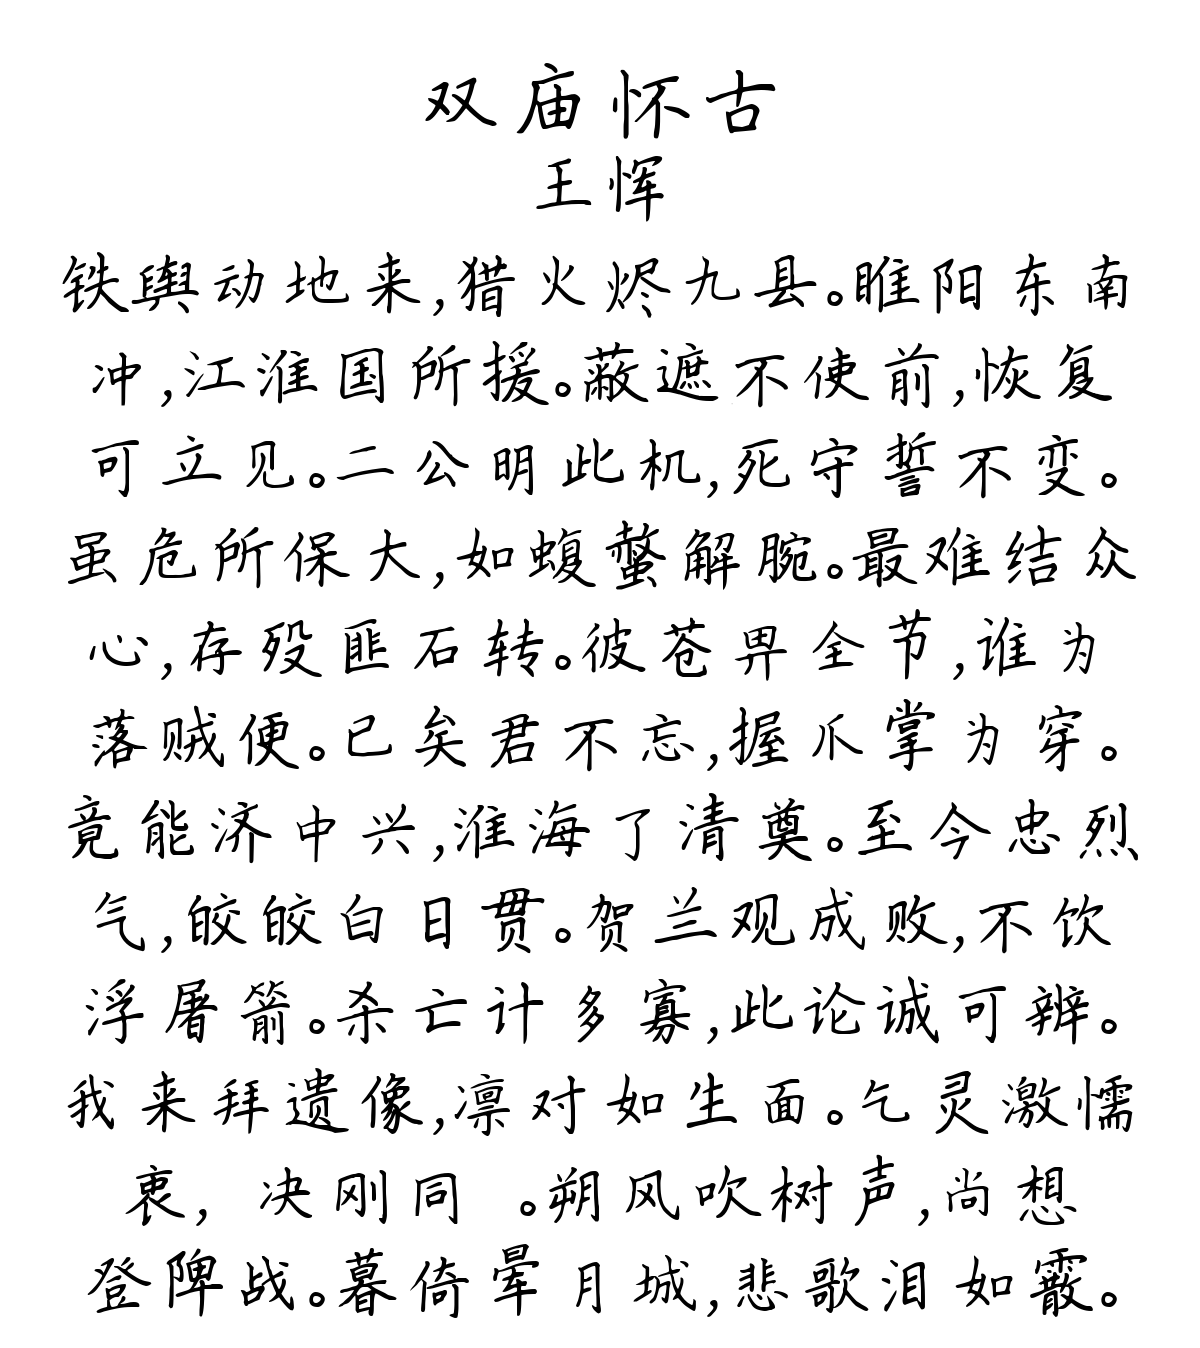 双庙怀古
王恽
铁舆动地来,猎火烬九县。睢阳东南
冲,江淮国所援。蔽遮不使前,恢复
可立见。二公明此机,死守誓不变。
虽危所保大,如蝮螫解腕。最难结众
心,存殁匪石转。彼苍畀全节,谁为
落贼便。已矣君不忘,握爪掌为穿。
竟能济中兴,淮海了清奠。至今忠烈
气,皎皎白日贯。贺兰观成败,不饮
浮屠箭。杀亡计多寡,此论诚可辨。
我来拜遗像,凛对如生面。乞灵激懦
衷, 决刚同 。朔风吹树声,尚想
登陴战。暮倚晕月城,悲歌泪如霰。